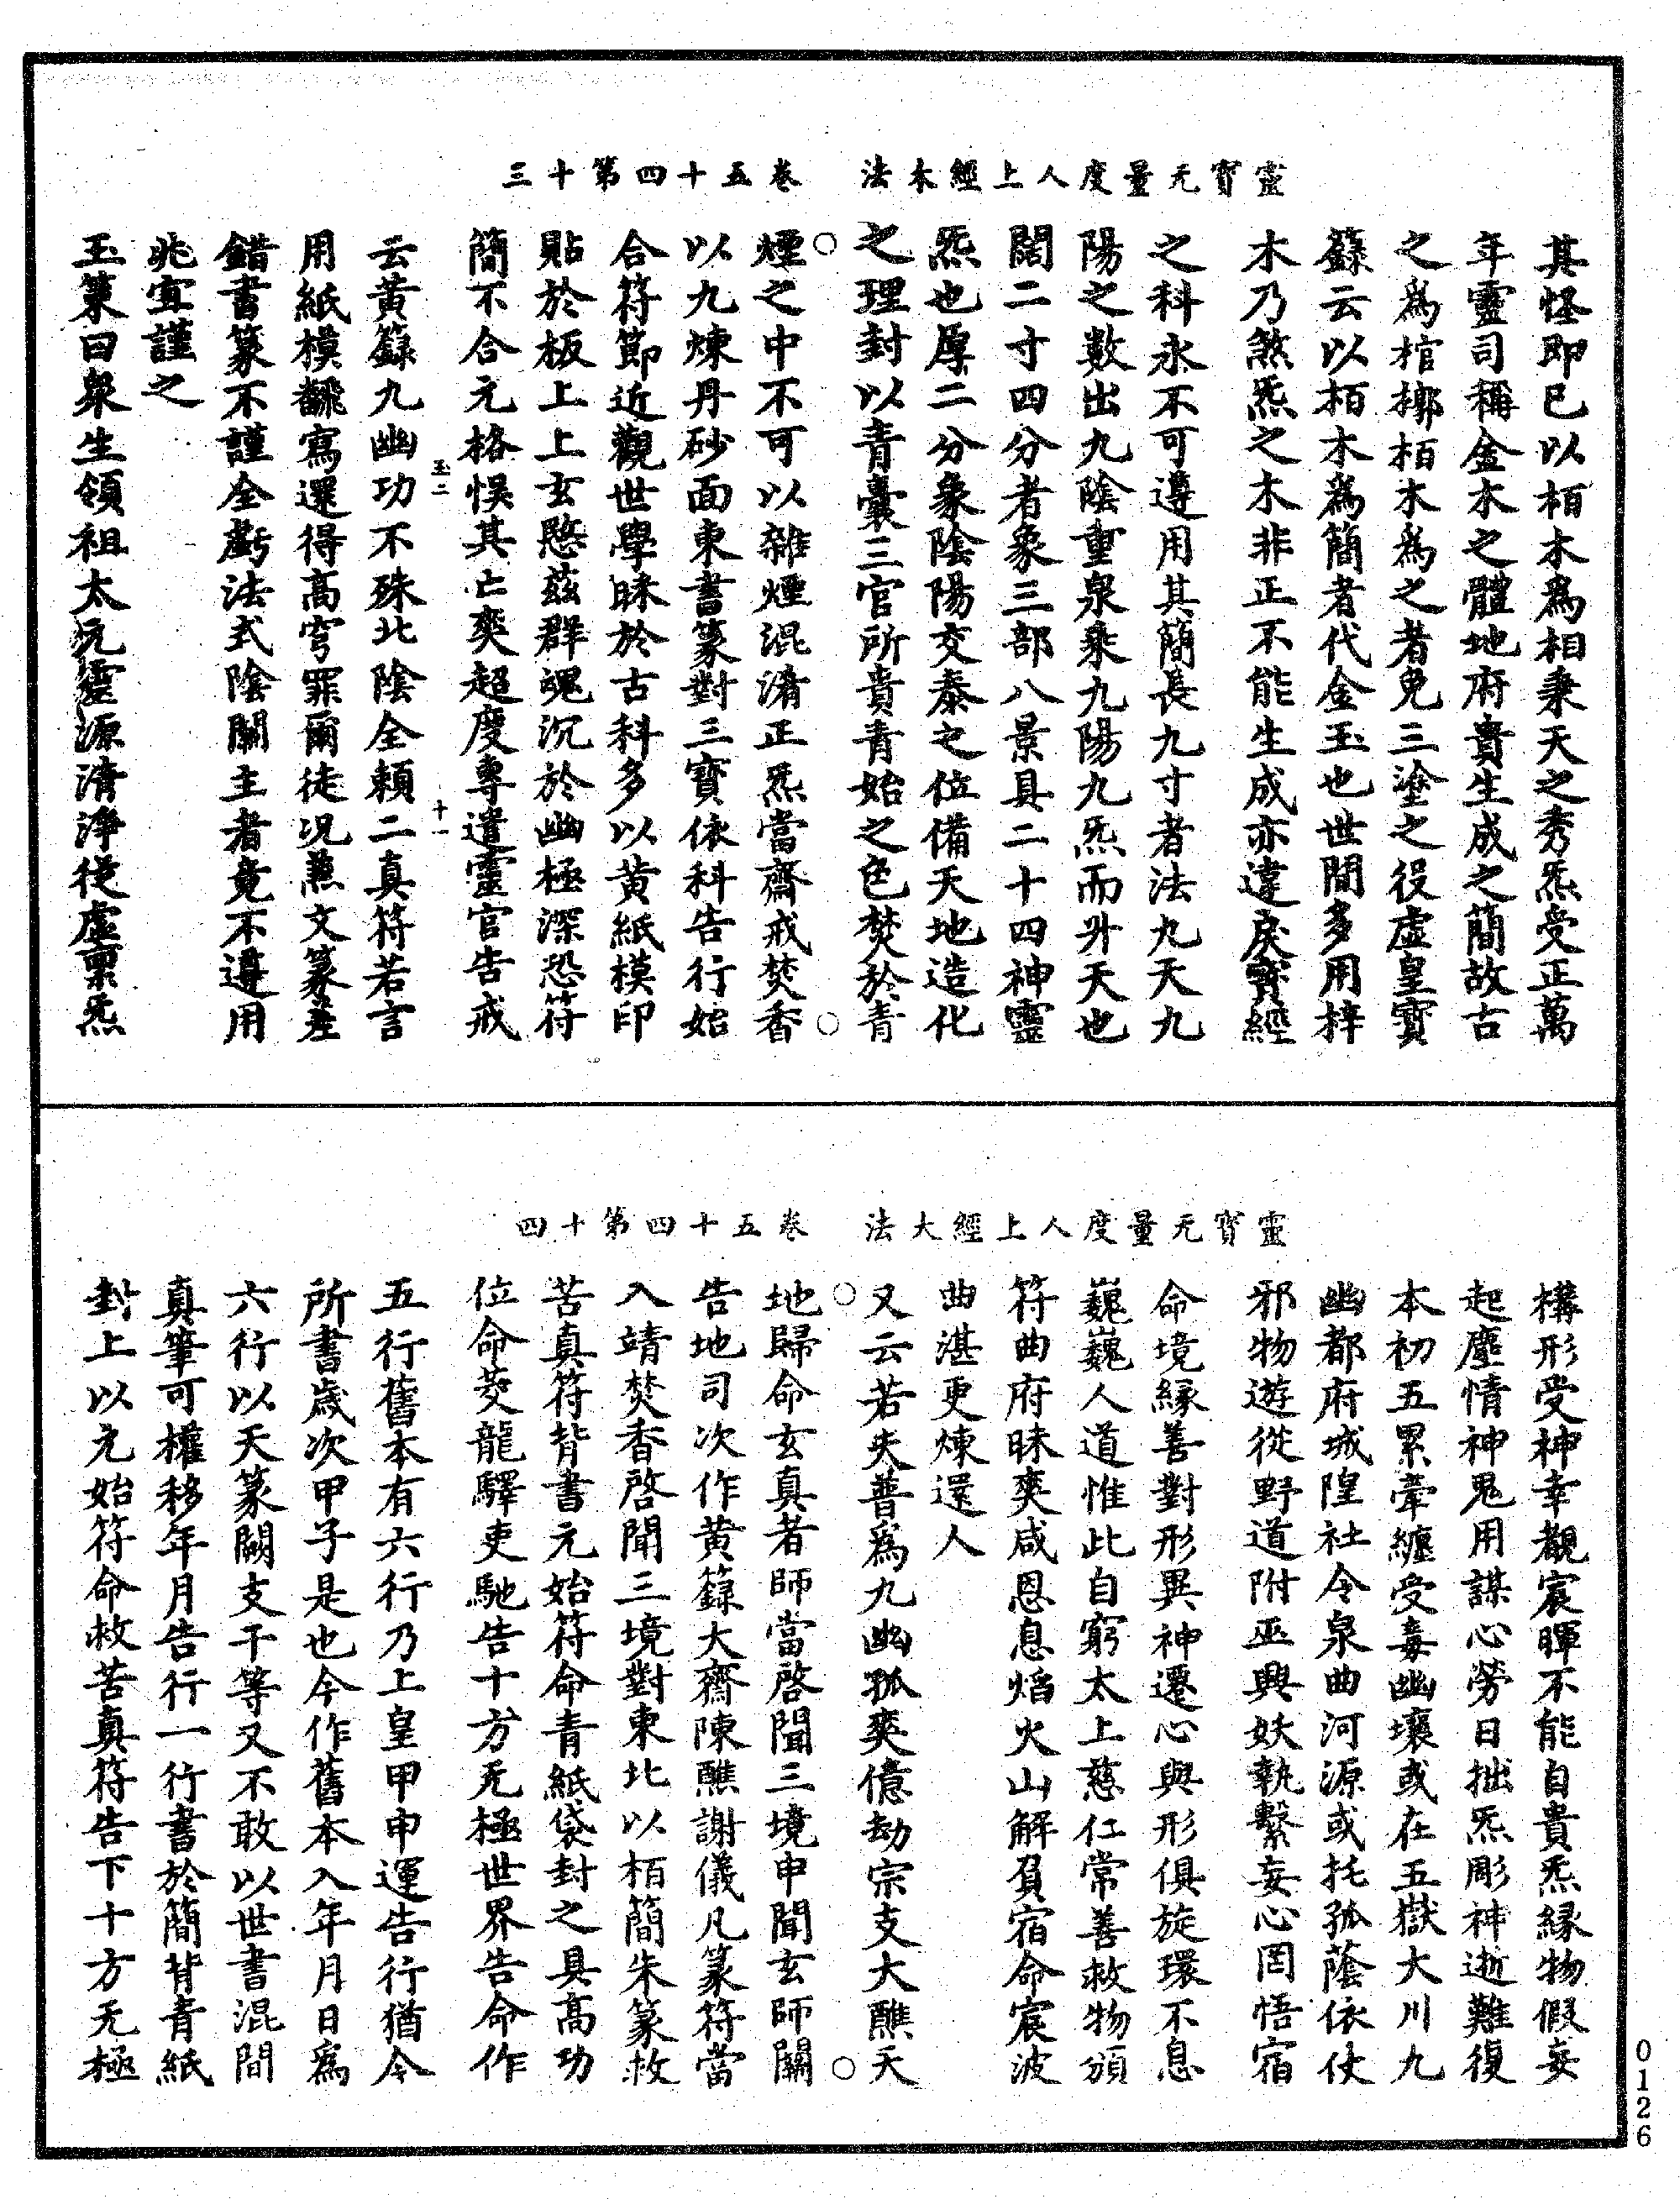 靈寶无量度人上經大法　卷五十四第十三
其怪即已以栢木爲相秉天之秀炁受正萬
年靈司稱金木之體地府貴生成之簡故古
之爲棺槨栢木爲之者免三塗之役虛皇寶
籙云以栢木爲簡者代金玉也世間多用梓
木乃煞炁之木非正不能生成亦違戾寶經
之科永不可遵用其簡長九寸者法九天九
陽之數出九陰重泉乘九陽九炁而升天也
闊二寸四分者象三部八景具二十四神靈
炁也厚二分象陰陽交泰之位備天地造化
之理封以青囊三官所貴青始之色焚於青
煙之中不可以雜煙混淆正炁當齋戒焚香
以九煉丹砂面東書篆對三寶依科告行始
合符節近觀世學昧於古科多以黄紙模印
貼於板上上玄愍茲群魂沉於幽極深恐符
簡不合元格悞其亡爽超度專遣靈官告戒
玉二　十一
云黄籙九幽功不殊北陰全頼二真符若言
用紙模飜寫還得高穹罪爾徒况兼文篆差
錯書篆不謹全虧法式陰關主者竟不遵用
兆宜謹之
玉篆曰衆生領祖太元靈源清淨從虛禀炁
靈寶无量度人上經大法　卷五十四第十四
構形受神幸觀宸暉不能自貴炁緣物假妄
起塵情神鬼用謀心勞日拙炁彫神逝難復
本初五累牽纏受毒幽壤或在五嶽大川九
幽都府城隍社令泉曲河源或托孤蔭依仗
邪物遊從野道附巫興妖執繫妄心罔悟宿
命境緣善對形異神遷心與形俱旋環不息
巍巍人道惟此自窮太上慈仁常善救物頒
符曲府昧爽咸恩息熖火山解負宿命宸波
曲湛更煉還人
又云若夫普爲九幽孤爽億劫宗支大醮天
地歸命玄真者師當啓聞三境申聞玄師關
告地司次作黄籙大齋陳醮謝儀凡篆符當
入靖焚香啓聞三境對東北以栢簡朱篆救
苦真符背書元始符命青紙袋封之具高功
位命茭龍驛吏馳告十方无極世界告命作
五行舊本有六行乃上皇甲申運告行猶今
所書歲次甲子是也今作舊本入年月日爲
六行以天篆闕支干等又不敢以世書混間
真筆可權移年月告行一行書於簡背青紙
封上以元始符命救苦真符告下十方无極
0126